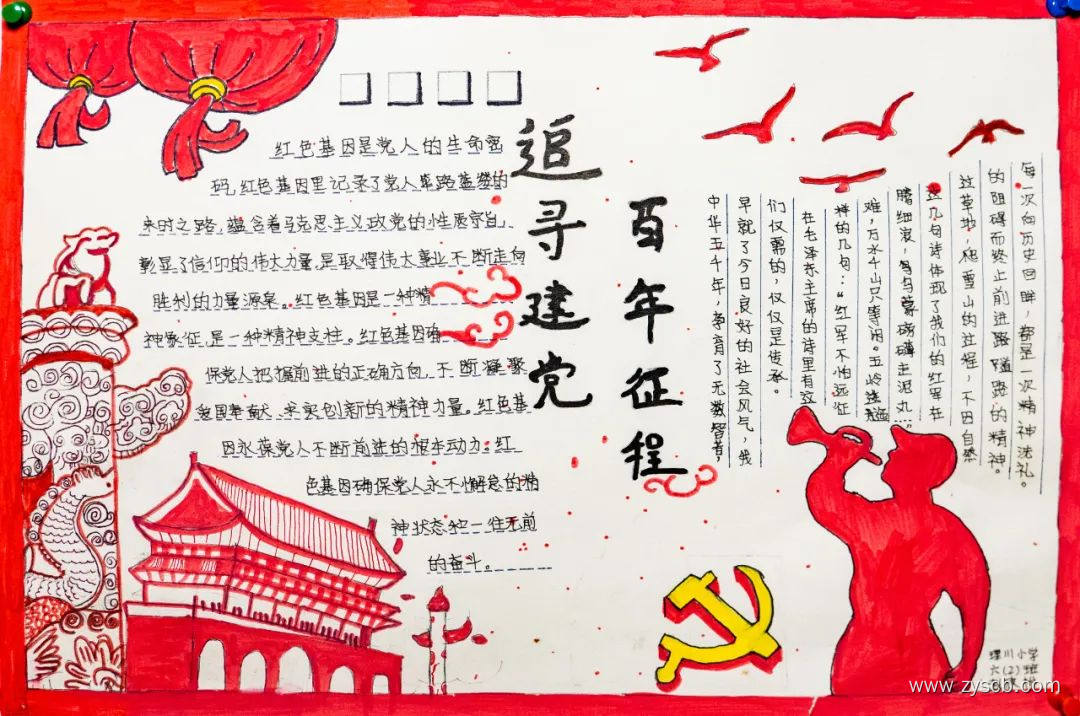 追寻建党
百年征程
红色基因是党人的生命密
码,红色基因里记录了党人筚路蓝缕的
来时之路,蕴含着马克思主义政党的性质宗旨、
彰显了信仰的伟大力量,是取得伟大事业不断走向
胜利的力量源泉。红色基因是一种精
神象征,是一种精神支柱。红色基因确
保党人把握前进的正确方向,不断凝聚
爱国奉献、求实创新的精神力量。红色基
因永葆党人不断前进的根本动力。红
色基因确保党人永不懈怠的精
神状态和一往无前
的奋斗。
中华五千年,孕育了无数智者,
早就了今日良好的社会风气,我
们仅需的,仅仅是传承。
在毛泽东主席的诗里有这
样的几句:“红军不怕远征
难,万水千山只等闲。五岭逶迤
腾细浪,乌蒙磅礴走泥丸……
这几句诗体现了我们的红军在
过草地,爬雪山的过程,不因自然
的阻碍而终止前进路 路的精神。
每一次向历史回眸,都是一次精神洗礼。
川小学
六(2)班
www.zyscb.com